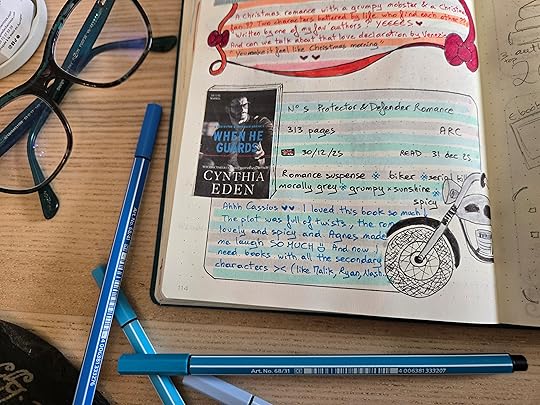 A Christmas romance with a grumpy mobster & a Christmas
fan ?? Two characters battered by life who find each other ??
Written by one of my fav authors ? YEEEES ♥
And can we talk about that love declaration by
"You make it feel like Christmas morning"
WHEN HE
GUARDS
CYNTHIA
EDEN
N° 5 Protector & Defender Romance
313 pages ARC
30/12/25 READ 31 dec 25
Romance suspense biker serial
morally grey grumpy x sunshine
spicy
Ahhh Cassius ♥♥ I loved this book so much!
The plot was full of twists, the
lovely and spicy and Agnes made
me laugh SO MUCH And now I
need books with all the secondary
characters >< (like Malik, Ryan, Nash
114
Art. No. 68/31 4 006381 333207